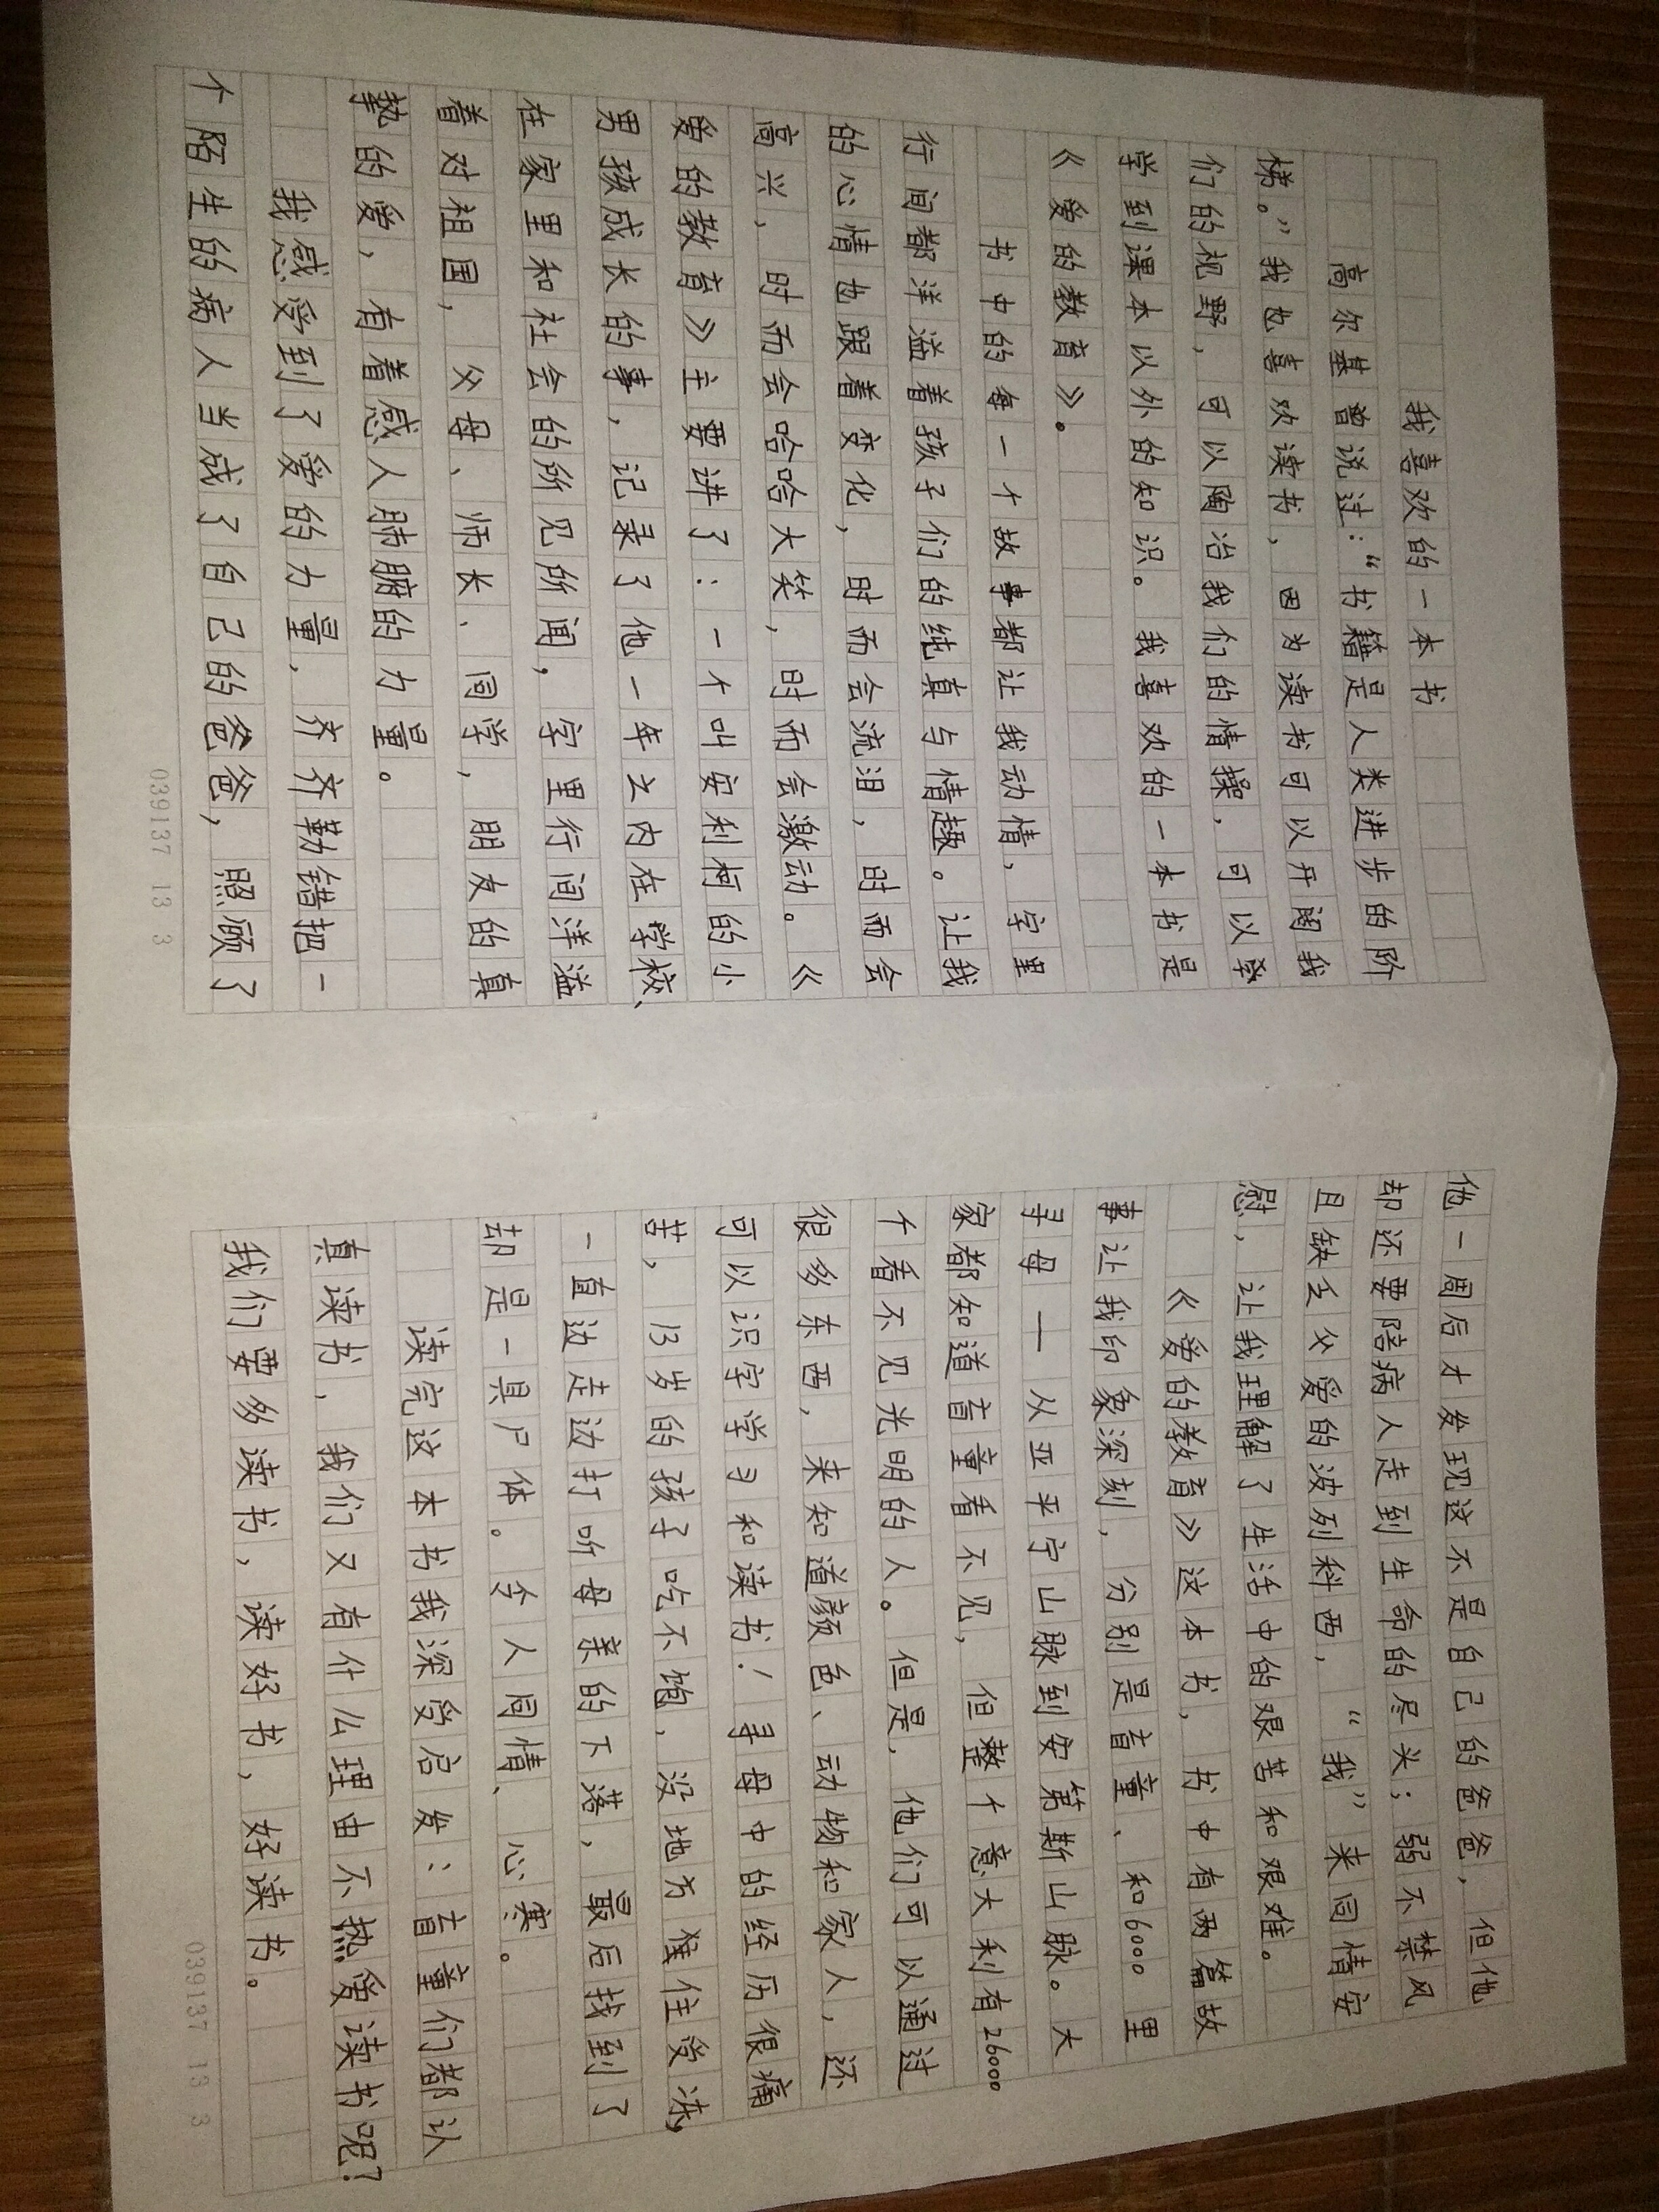 我喜欢的一本书
高尔基曾说过：“书籍是人类进步的阶
梯。”我也喜欢读书，因为读书可以开阔我
们的视野，可以陶冶我们的情操，可以学
学到课本以外的知识。我喜欢的一本书是
《爱的教育》。
书中的每一个故事都让我动情，字里
行间都洋溢着孩子们的纯真与情趣。让我
的心情也跟着变化，时而会流泪，时而会
高兴，时而会哈哈大笑，时而会激动。《
爱的教育》主要讲了：一个叫安利柯的小
男孩成长的事，记录了他一年之内在学校、
在家里和社会的所见所闻，字里行间洋溢
着对祖国，父母、师长、同学，朋友的真
挚的爱，有着感人肺腑的力量。
我感受到了爱的力量，齐齐勒错把一
个陌生的病人当成了自己的爸爸，照顾了
039137 13 3
他一周后才发现这不是自己的爸爸，但他
却还要陪病人走到生命的尽头；弱不禁风
且缺乏父爱的波列科西，“我”来同情安
慰，让我理解了生活中的艰苦和艰难。
《爱的教育》这本书，书中有两篇故
事让我印象深刻，分别是盲童、和6000里
寻母——从亚平宁山脉到安第斯山脉。大
家都知道盲童看不见，但整个意大利有26000
个看不见光明的人。但是，他们可以通过
很多东西，来知道颜色、动物和家人，还
可以识字学习和读书！寻母中的经历很痛
苦，13岁的孩子吃不饱，没地方住受冻，
一直边走边打听母亲的下落，最后找到了
却是一具尸体。令人同情、心寒。
读完这本书我深受启发：盲童们都认
真读书，我们又有什么理由不热爱读书呢？
我们要多读书，读好书，好读书。
039137 13 3